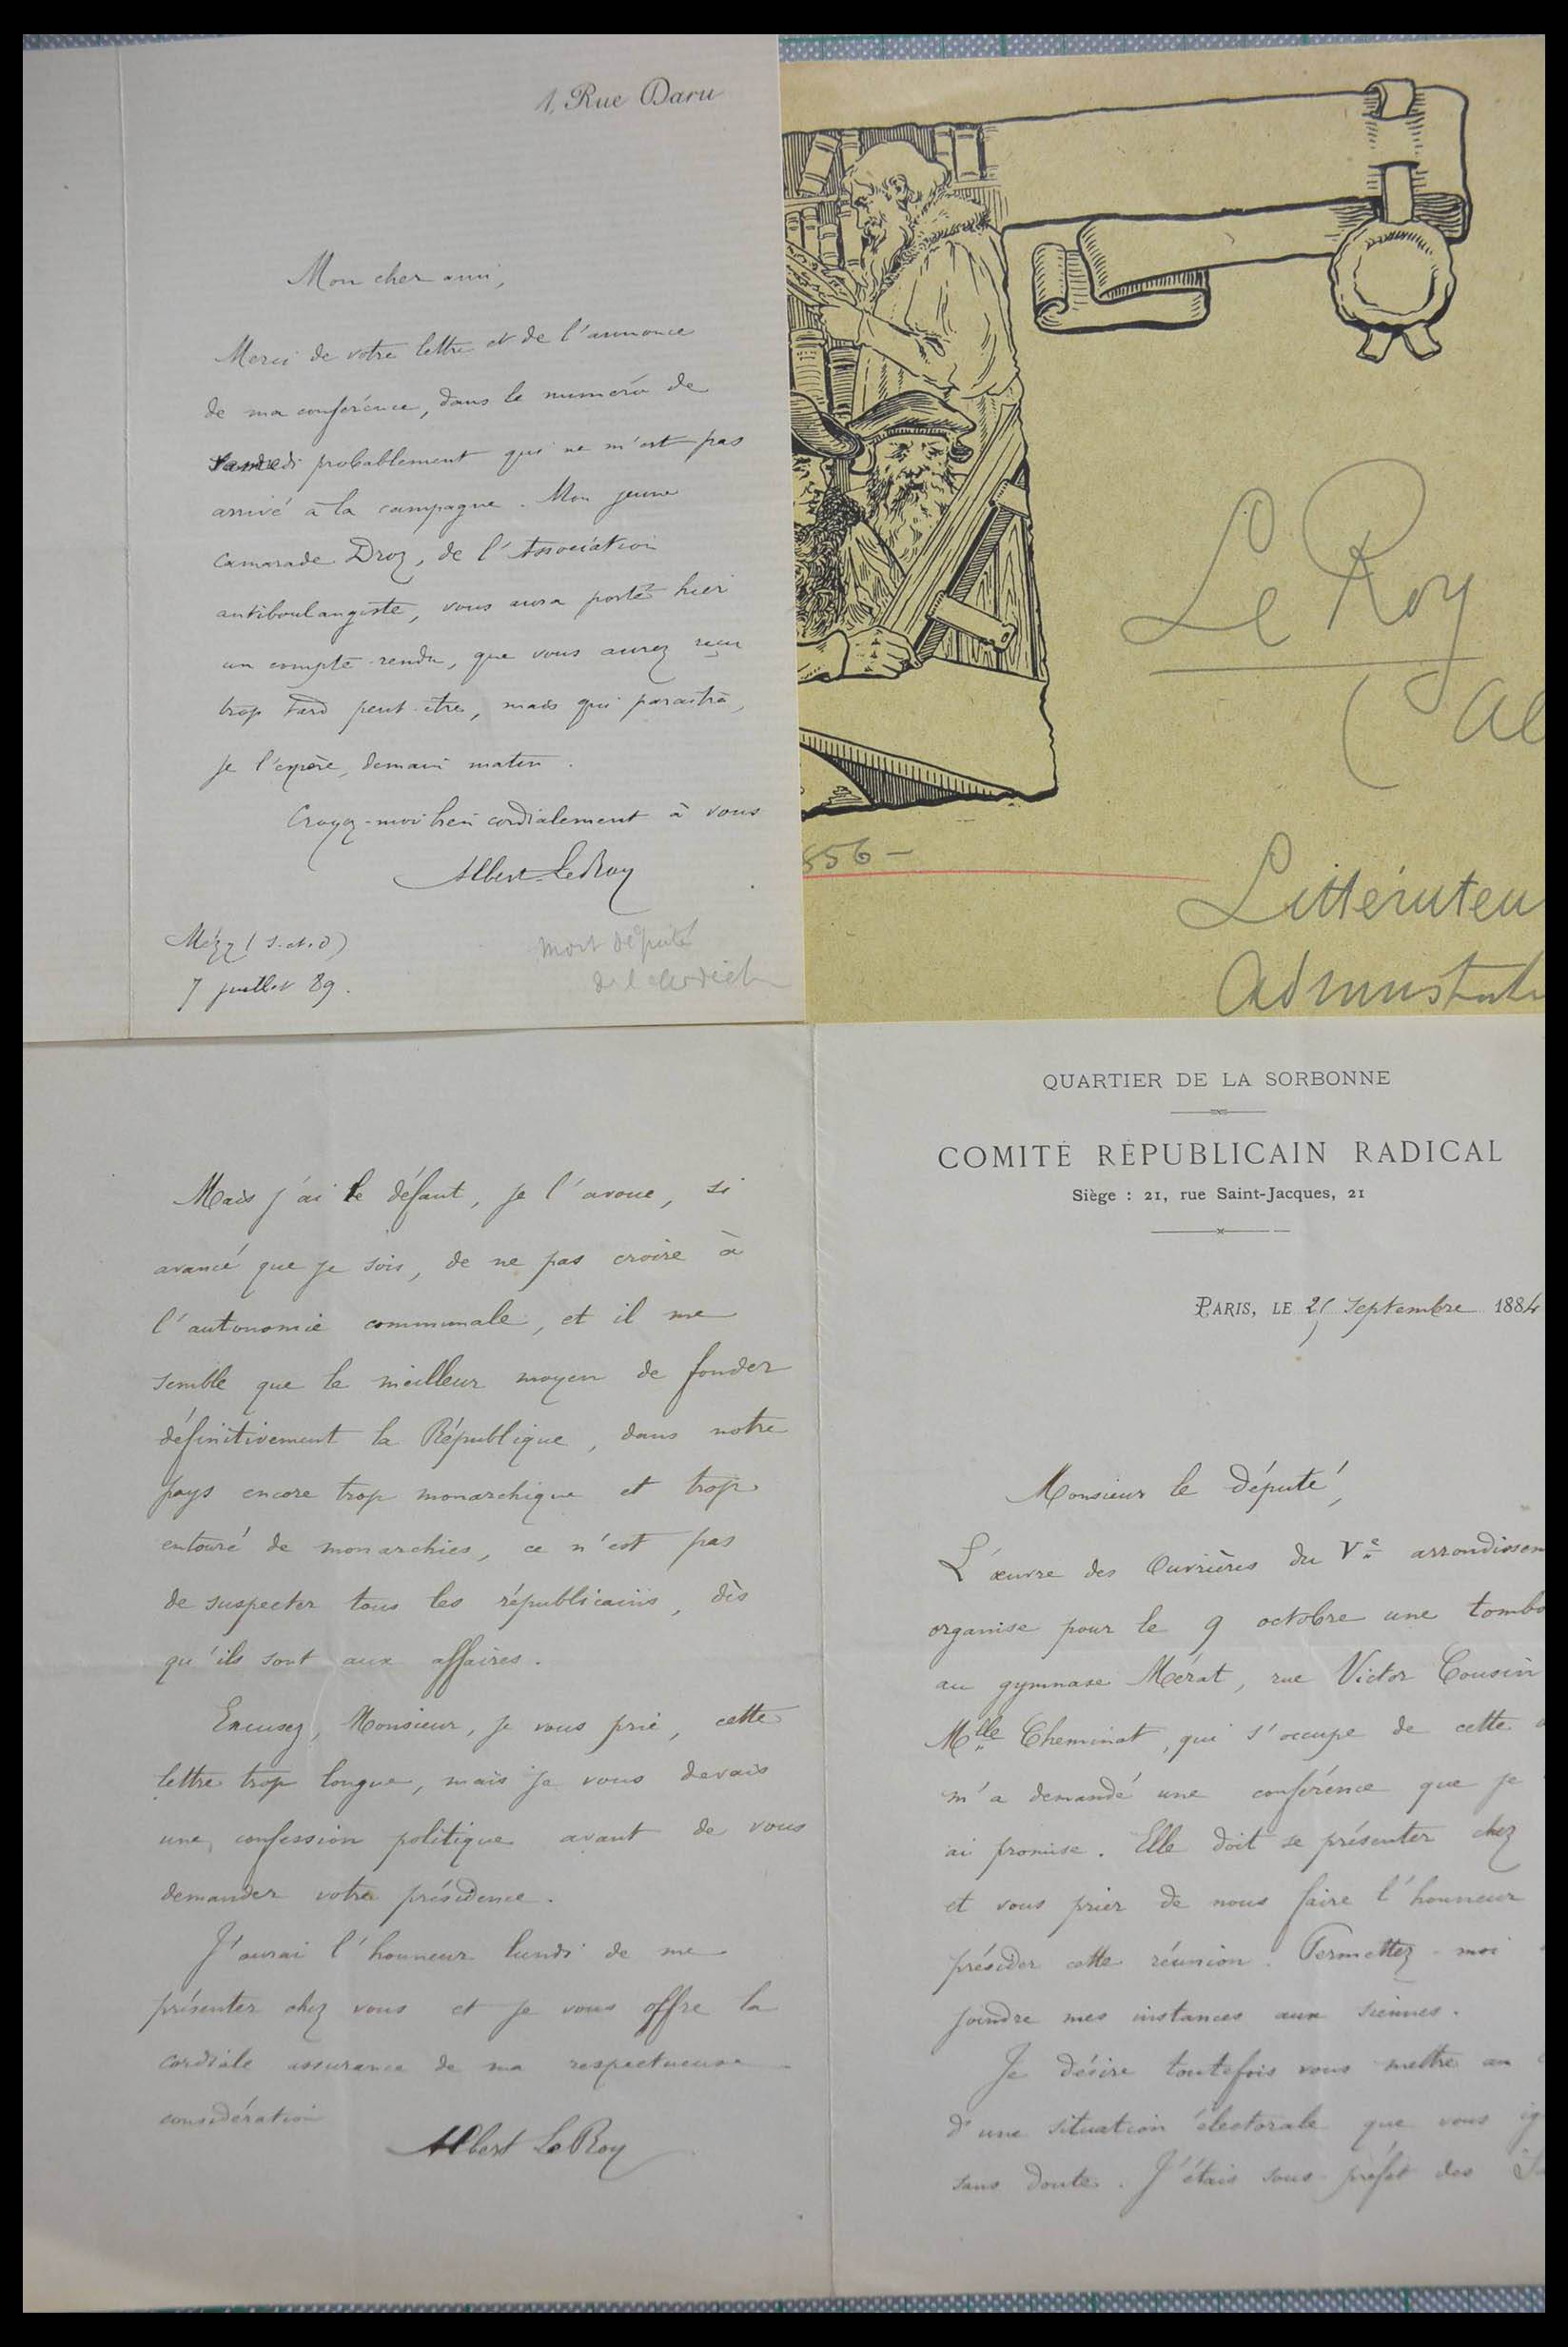 1, Rue Daru
Mon cher ami,
Merci de votre lettre et de l'annonce
de ma conférence, dans le numéro de
probablement qui ne m'est pas
arrivé à la campagne. Mon jeune
camarade Droz, de l'Association
antiboulangiste, vous aura porté hier
un compte-rendu, que vous aurez reçu
trop tard peut-être, mais qui paraîtra,
je l'espère, demain matin.
Croyez-moi bien cordialement à vous
Albert Le Roy
Mézy (S.-et-O)
7 juillet 89.
mort député
de l'Ardèch
Le Roy
(Al
856 –
Littérateu
Administrat
Mais j'ai le défaut, je l'avoue, si
avancé que je sois, de ne pas croire à
l'autonomie communale, et il me
semble que le meilleur moyen de fonder
définitivement la République, dans notre
pays encore trop monarchique et trop
entouré de monarchies, ce n'est pas
de suspecter tous les républicains, dès
qu'ils sont aux affaires.
Excusez, Monsieur, je vous prie, cette
lettre trop longue, mais je vous devais
une confession politique avant de vous
demander votre présidence.
J'aurai l'honneur lundi de me
présenter chez vous et je vous offre la
cordiale assurance de ma respectueuse
considération
Albert Le Roy
QUARTIER DE LA SORBONNE
COMITÉ RÉPUBLICAIN RADICAL
Siège : 21, rue Saint-Jacques, 21
PARIS, LE Septembre 1884
Monsieur le député,
L'œuvre des Ouvrières du Ve arrondissem
organise pour le 9 octobre une tombo
au gymnase Mérat, rue Victor Cousin
Mlle Cheminat, qui s'occupe de cette
m'a demandé une conférence que je
ai promise. Elle doit se présenter chez
et vous prier de nous faire l'honneur
présider cette réunion. Permettez-moi
joindre mes instances aux siennes.
Je désire toutefois vous mettre au
d'une situation électorale que vous ig
sans doute. J'étais sous-préfet des